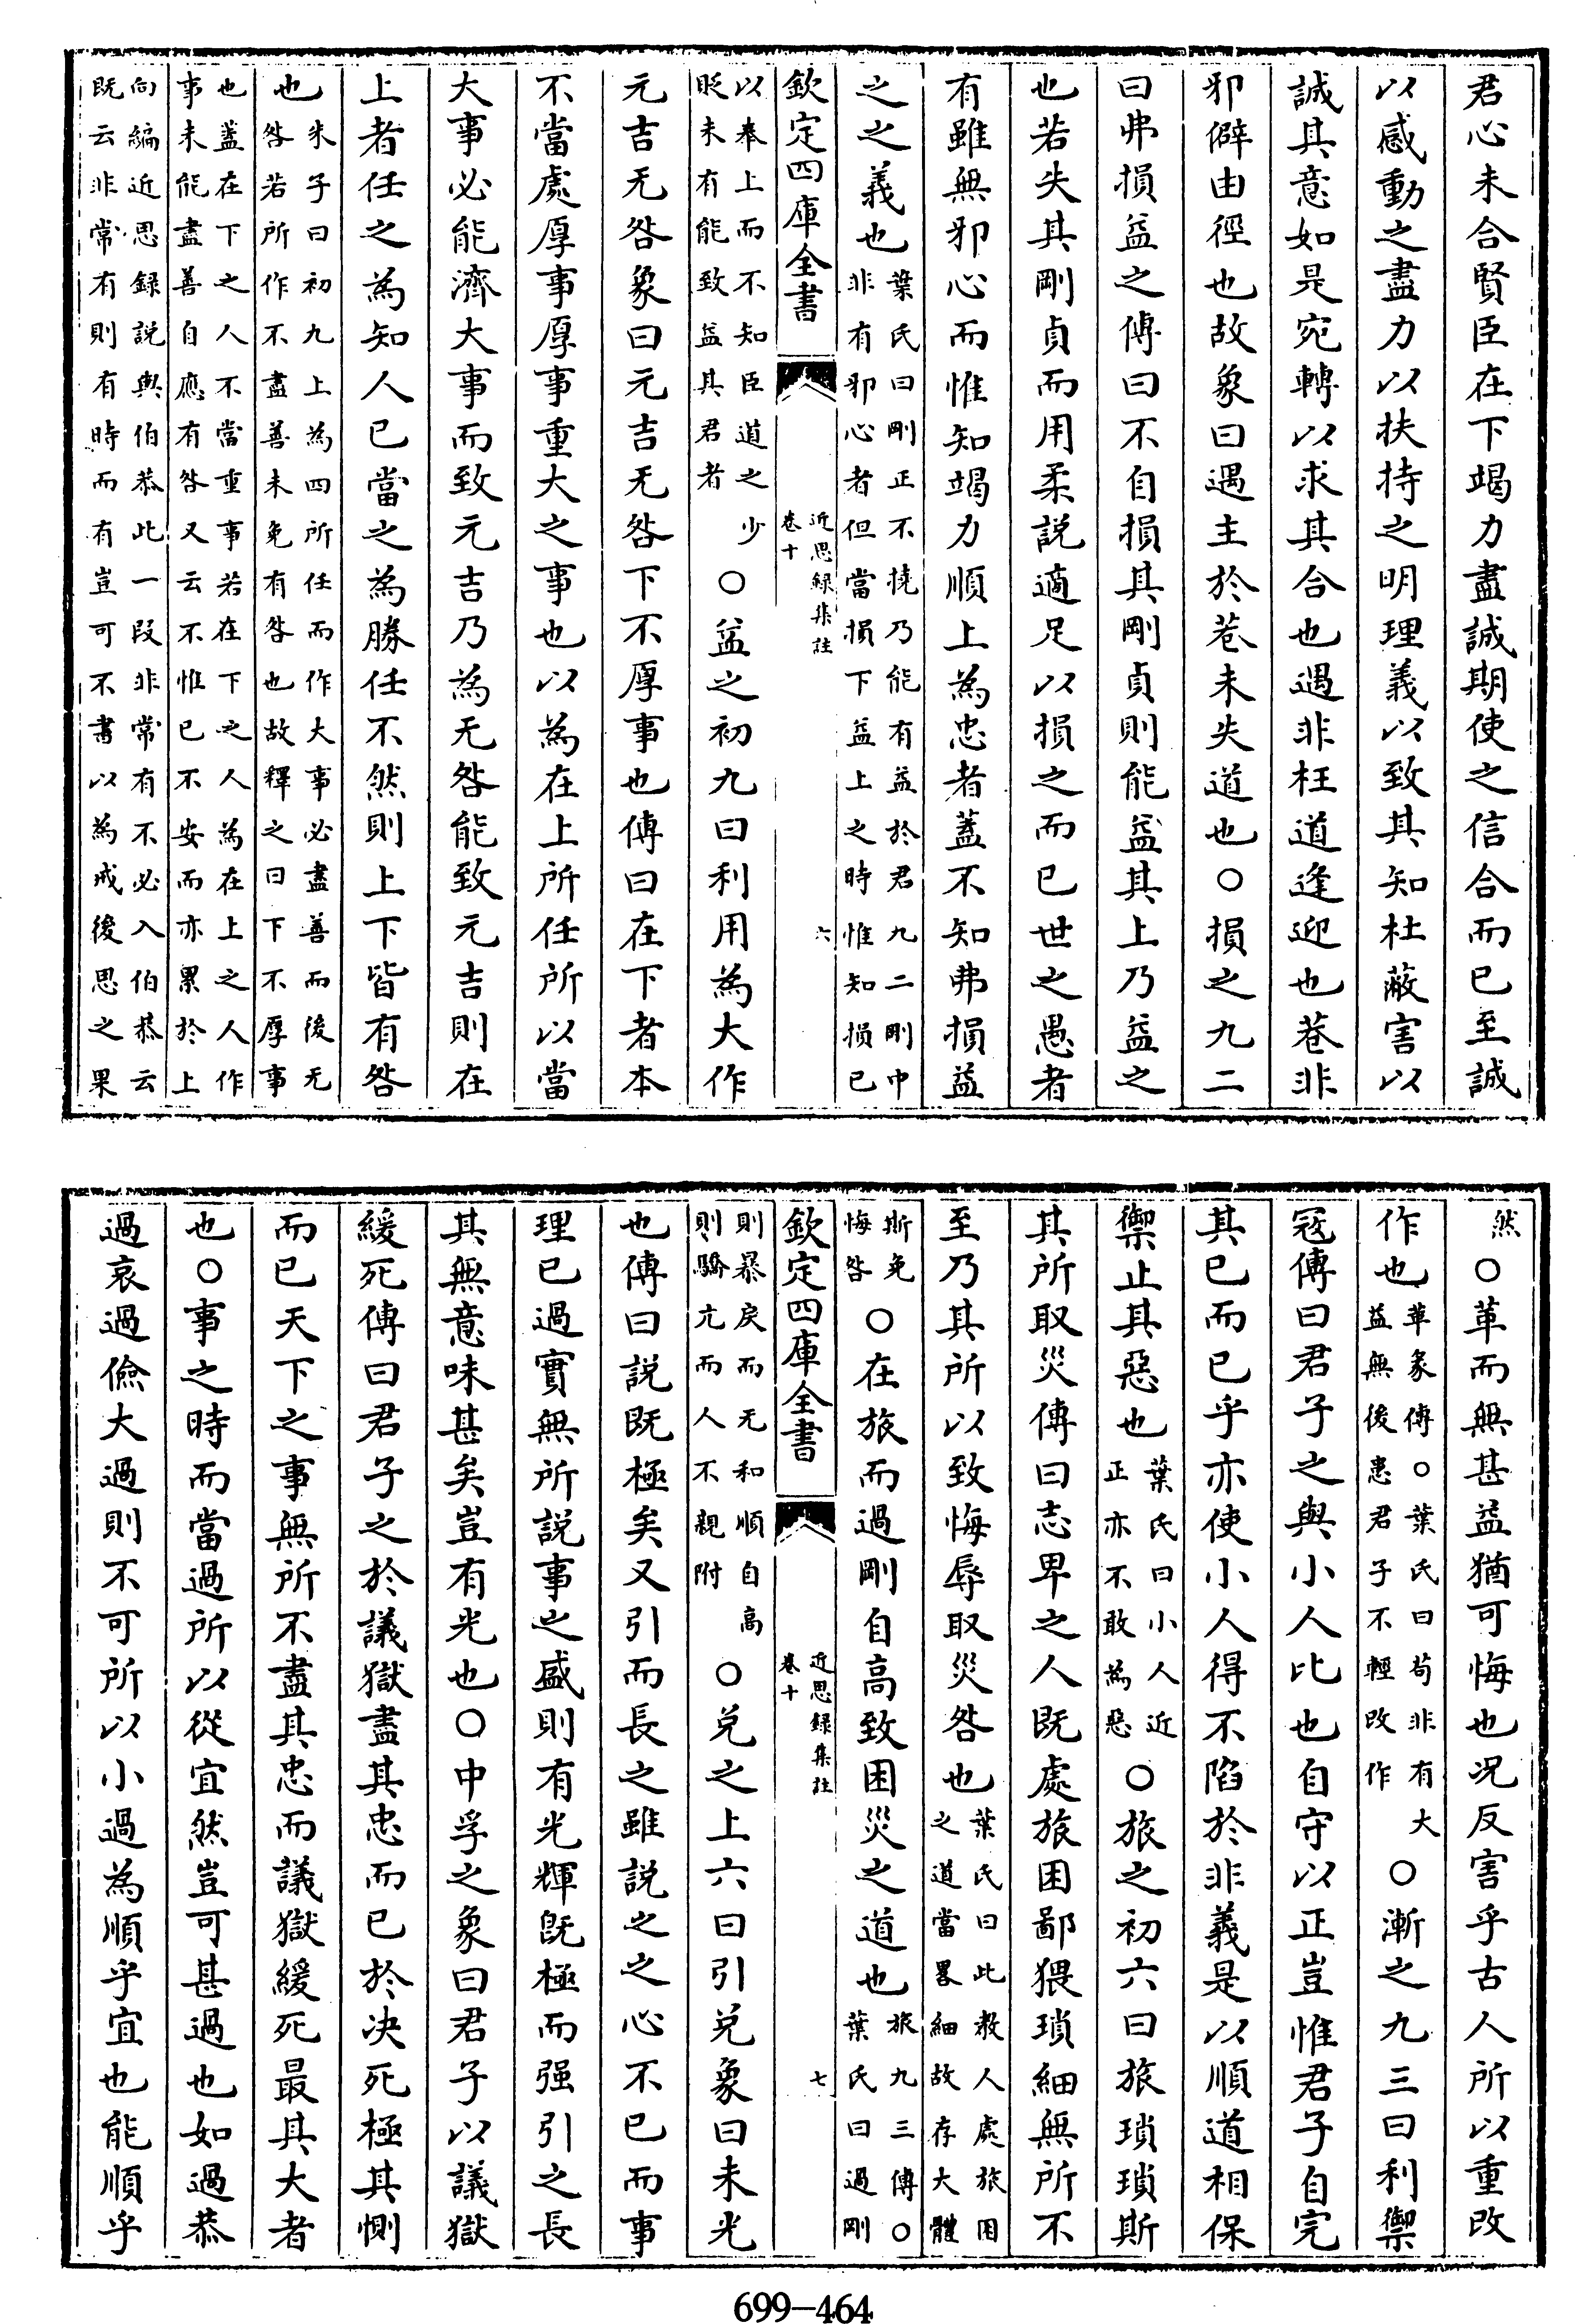 君心未合賢臣在下竭力盡誠期使之信合而已至誠
以感動之盡力以扶持之明理義以致其知杜蔽害以
誠其意如是宛轉以求其合也遇非枉道逢迎也巷非
邪僻由徑也故象曰遇主於巷未失道也○損之九二
曰弗損益之傳曰不自損其剛貞則能益其上乃益之
也若失其剛貞而用柔説適足以損之而已世之愚者
有雖無邪心而惟知竭力順上為忠者蓋不知弗損益
之之義也
葉氏曰剛正不撓乃能有益於君九二剛中
非有邪心者但當損下益上之時惟知損已
欽定四庫全書
近思録集註
卷十
六
以奉上而不知臣道之少
貶未有能致益其君者
○益之初九曰利用為大作
元吉无咎象曰元吉无咎下不厚事也傳曰在下者本
不當處厚事厚事重大之事也以為在上所任所以當
大事必能濟大事而致元吉乃為无咎能致元吉則在
上者任之為知人已當之為勝任不然則上下皆有咎
也
朱子曰初九上為四所任而作大事必盡善而後无
咎若所作不盡善未免有咎也故釋之曰下不厚事
也蓋在下之人不當重事若在下之人為在上之人作
事未能盡善自應有咎又云不惟已不安而亦累於上
向編近思録説與伯恭此一段非常有不必入伯恭云
既云非常有則有時而有豈可不書以為戒後思之果
然
○革而無甚益猶可悔也况反害乎古人所以重改
作也
革彖傳○葉氏曰苟非有大
益無後患君子不輕改作
○漸之九三曰利禦
冦傳曰君子之與小人比也自守以正豈惟君子自完
其已而已乎亦使小人得不陷於非義是以順道相保
禦止其惡也
葉氏曰小人近
正亦不敢為惡
○旅之初六曰旅瑣瑣斯
其所取災傳曰志卑之人既處旅困鄙猥瑣細無所不
至乃其所以致悔辱取災咎也
葉氏曰此教人處旅困
之道當畧細故存大體
斯免
悔咎
○在旅而過剛自高致困災之道也
旅九三傳○
葉氏曰過剛
欽定四庫全書
近思録集註
卷十
七
則暴戾而无和順自高
則驕亢而人不親附
○兌之上六曰引兌象曰未光
也傳曰説既極矣又引而長之雖説之之心不已而事
理已過實無所説事之盛則有光輝既極而强引之長
其無意味甚矣豈有光也○中孚之象曰君子以議獄
緩死傳曰君子之於議獄盡其忠而已於决死極其惻
而已天下之事無所不盡其忠而議獄緩死最其大者
也○事之時而當過所以從宜然豈可甚過也如過恭
過哀過儉大過則不可所以小過為順乎宜也能順乎
699-464